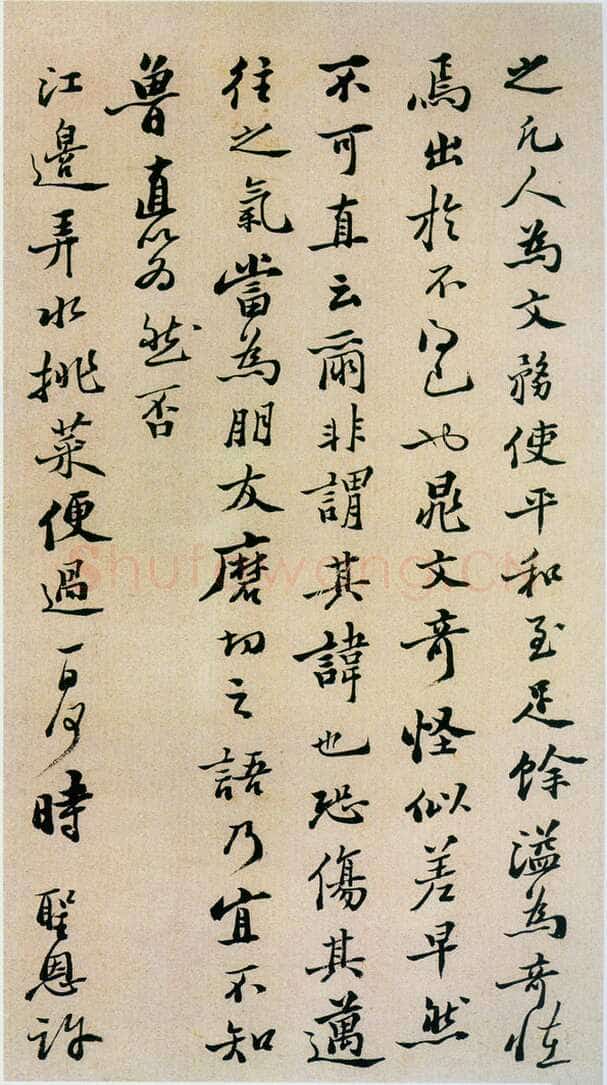 之凡人為文務使平和至足餘溢為奇怪
焉出於不得已也晁文奇怪似差早然
不可直云爾非謂其諱也恐傷其邁
往之氣當為朋友磨切之語乃宜不知
魯直以為然否
江邊弄水挑菜便過一日何時聖恩許
Shufawang.CN